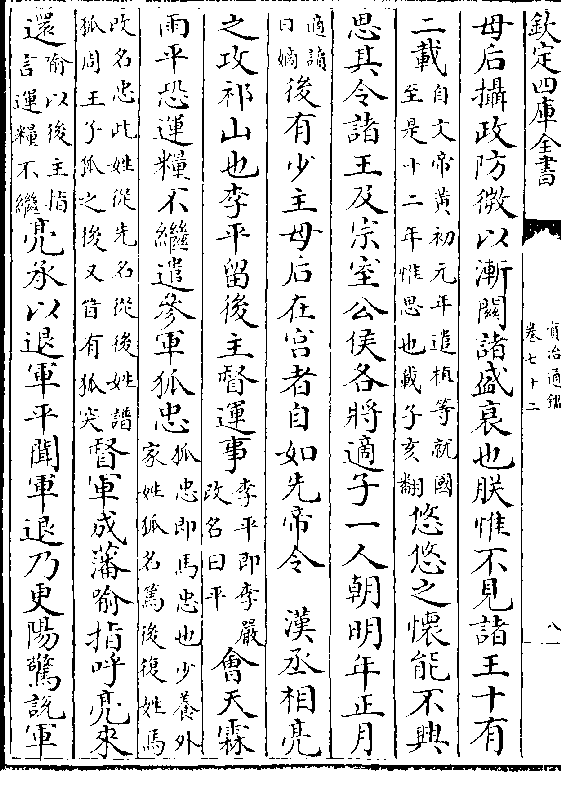 欽定四庫全書
資治通鑑
卷七十二
八
母后攝政防微以漸關諸盛衰也朕惟不見諸王十有
二載自文帝黄初元年遣植等就國至是十二年惟思也載子亥翻悠悠之懷能不興
思其令諸王及宗室公侯各將適子一人朝明年正月
適讀曰嫡後有少主母后在宫者自如先帝令　漢丞相亮
之攻祁山也李平留後主督運事李平即李嚴改名曰平會天霖
雨平恐運糧不繼遣參軍狐忠狐忠即馬忠也少養外家姓狐名篤後復姓馬
改名忠此姓從先名從後姓譜狐周王子狐之後又晋有狐突督軍成藩喻指呼亮來
還喻以後主指言運糧不繼亮承以退軍平聞軍退乃更陽驚說軍